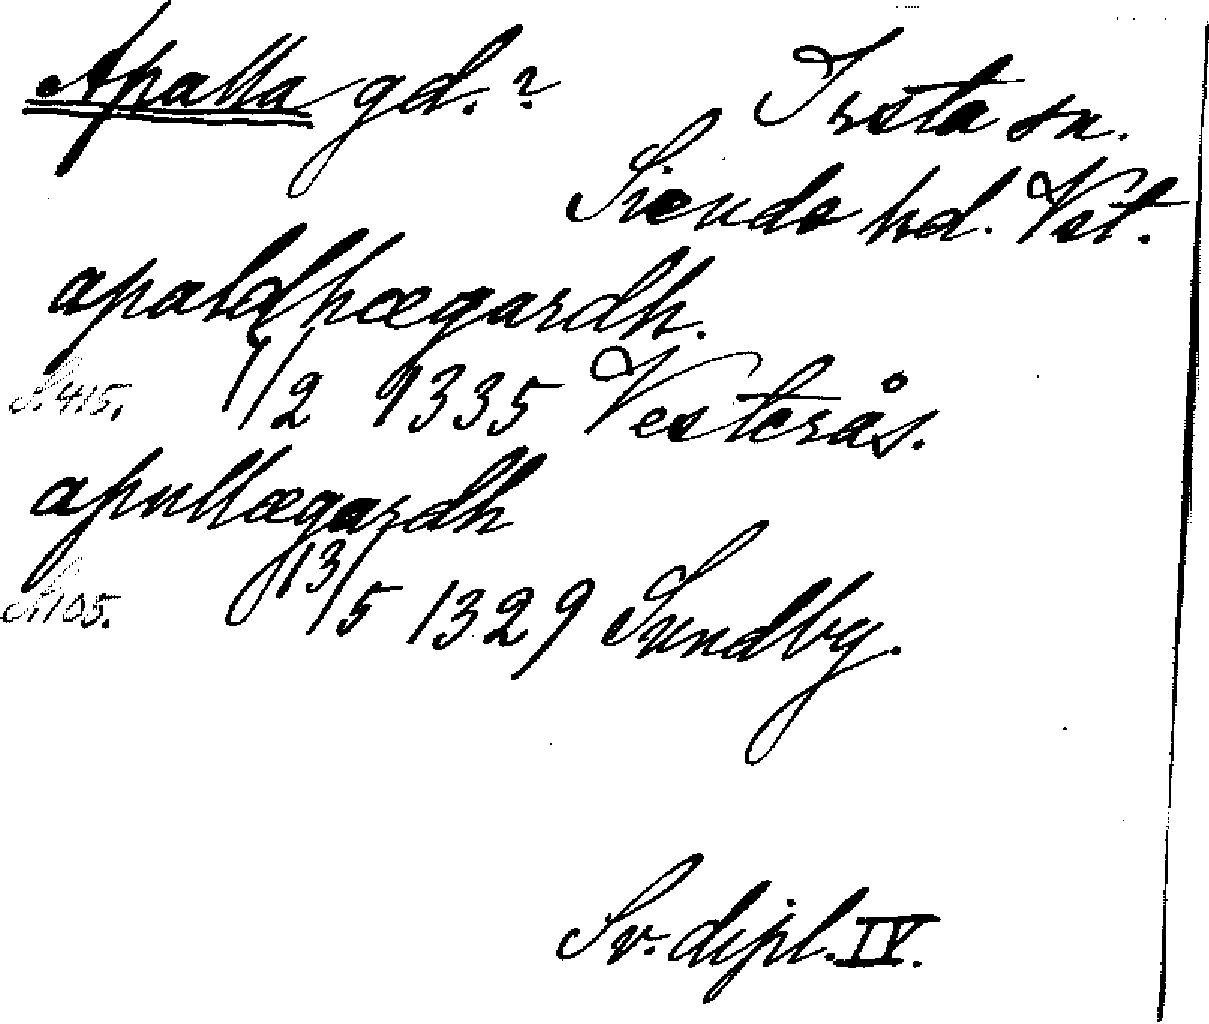 Apalla gd.? Irsta sn.
Siende hd. Vst.
apaldhægardh.
S. 415. 1/2 1335 Vesterås.
apullægardh
S. 105. 13/5 1329 Sundby.
Sv. dipl. IV.